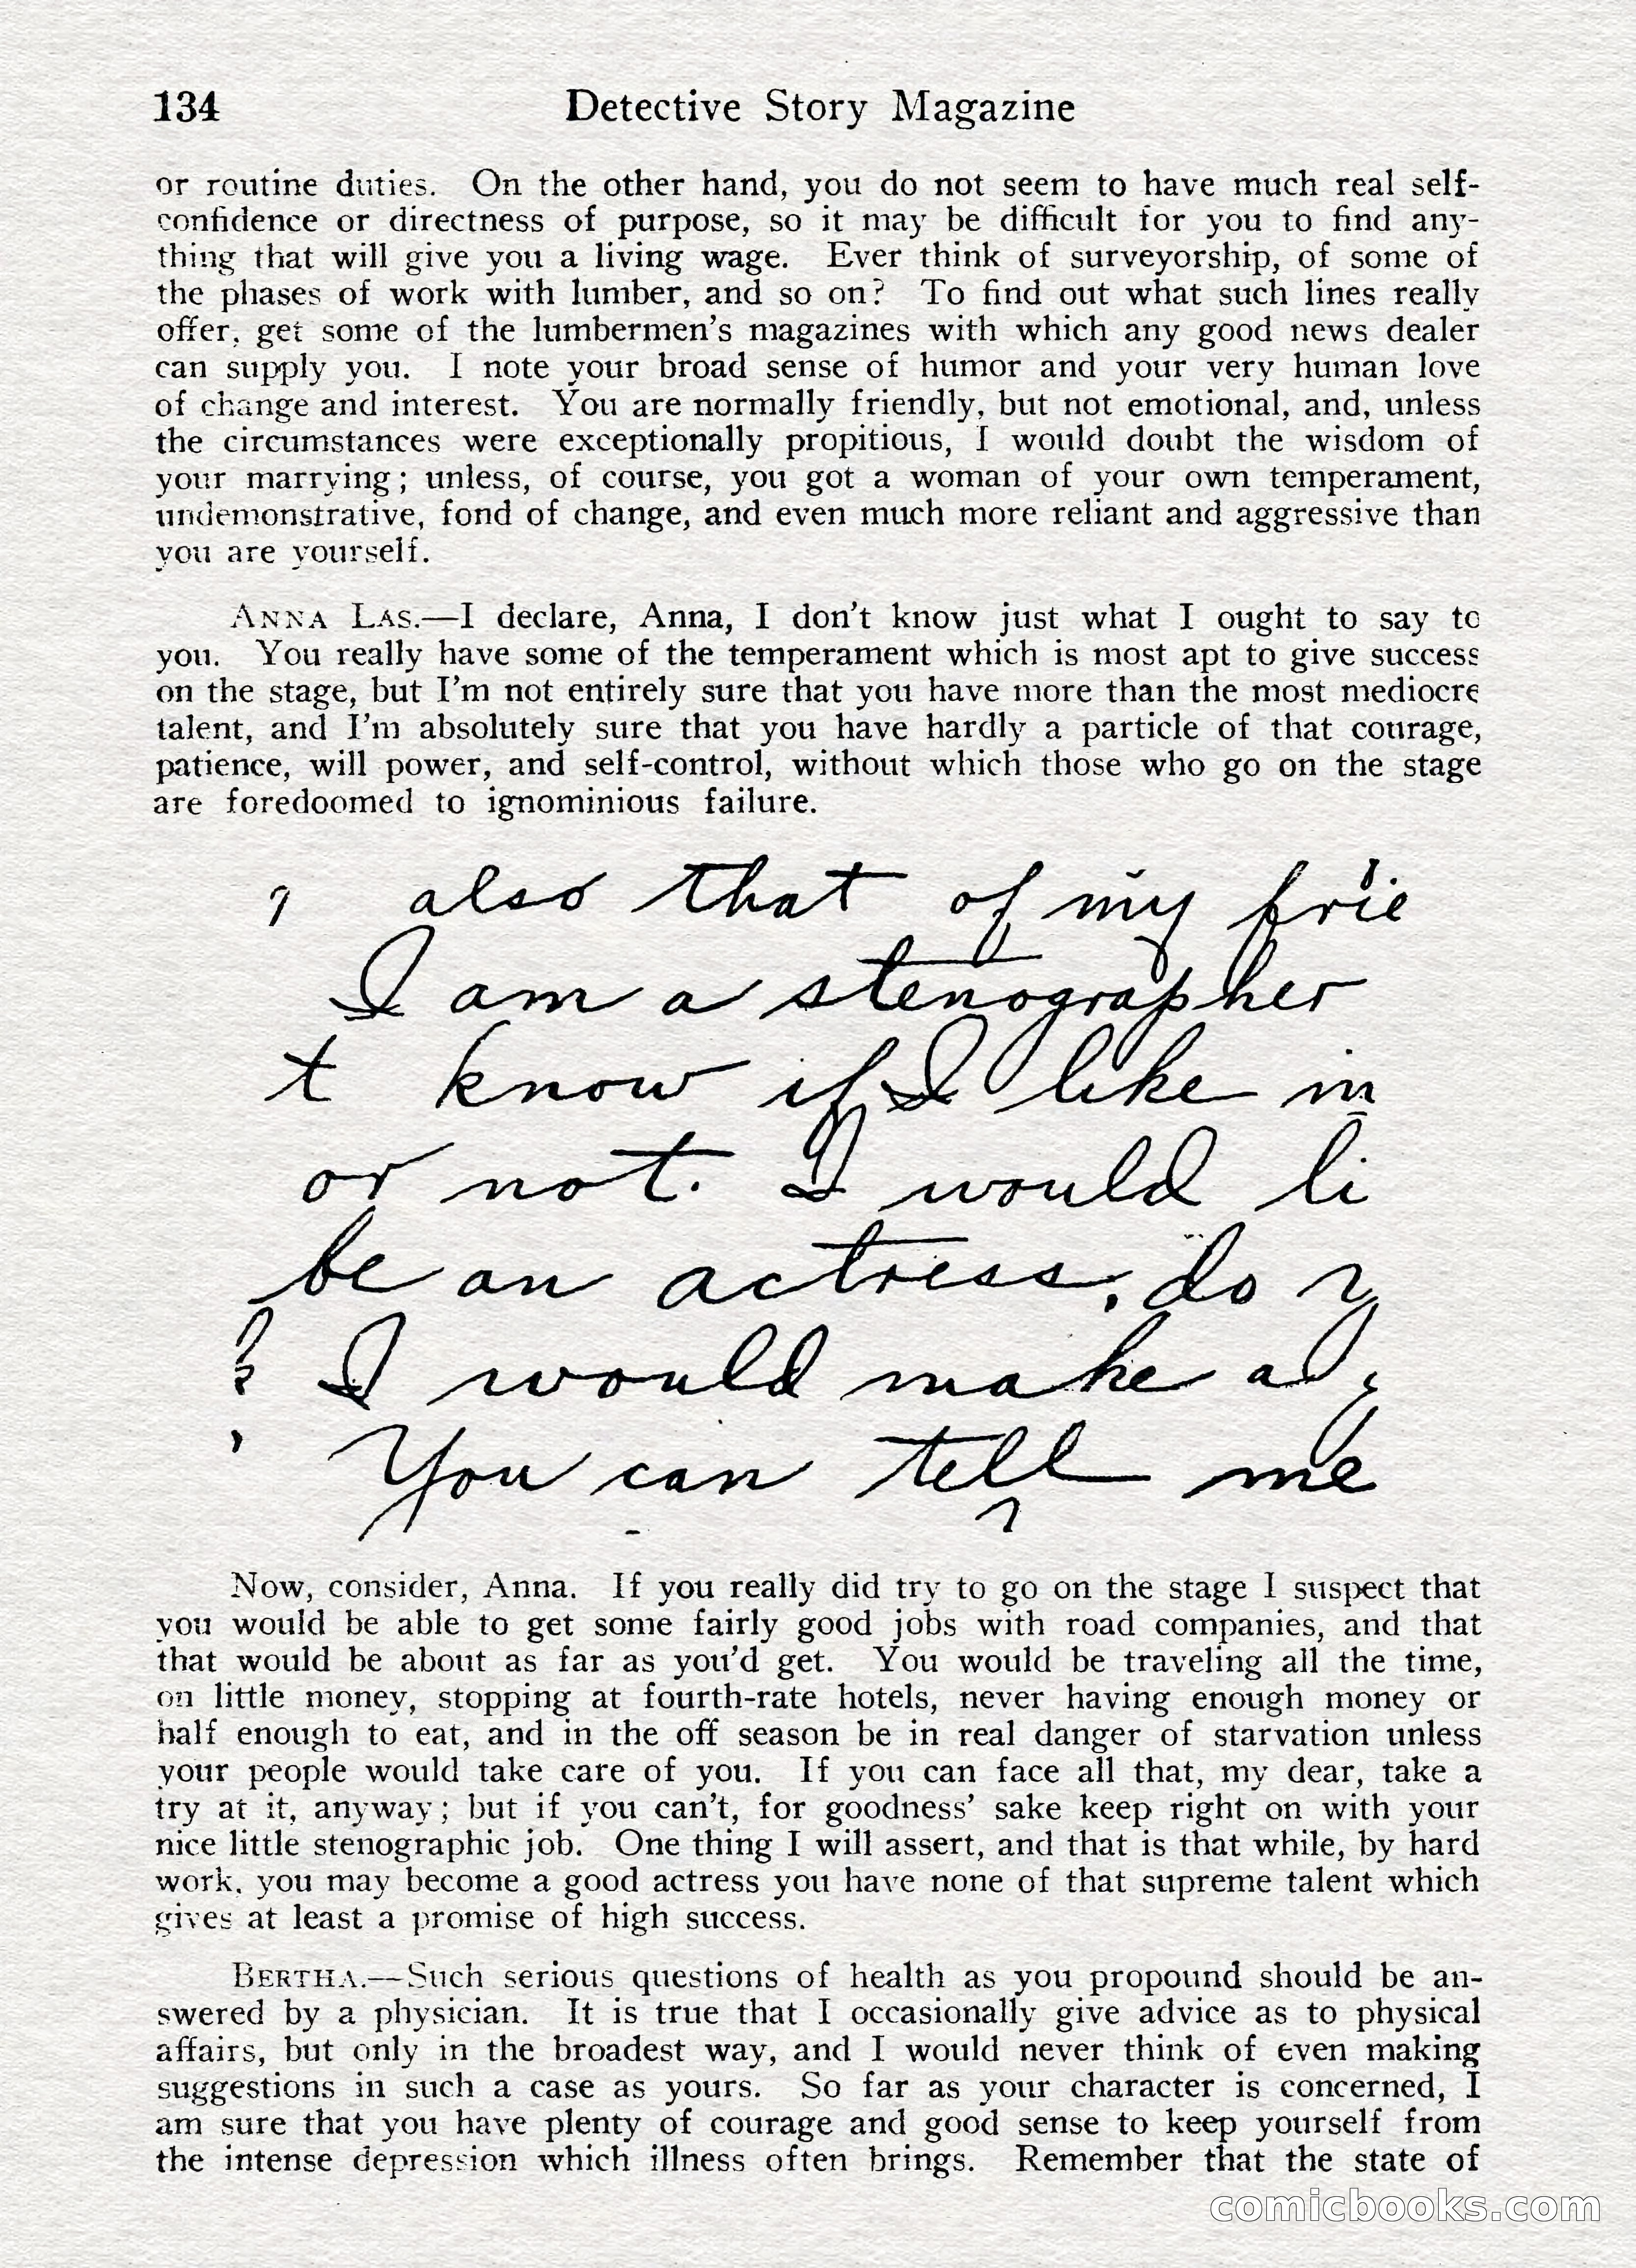 134
Detective Story Magazine
or routine duties. On the other hand, you do not seem to have much real self-
confidence or directness of purpose, so it may be difficult for you to find any-
thing that will give you a living wage. Ever think of surveyorship, of some of
the phases of work with lumber, and so on? To find out what such lines really
offer, get some of the lumbermen's magazines with which any good news dealer
can supply you. I note your broad sense of humor and your very human love
of change and interest. You are normally friendly, but not emotional, and, unless
the circumstances were exceptionally propitious, I would doubt the wisdom of
your marrying; unless, of course, you got a woman of your own temperament,
undemonstrative, fond of change, and even much more reliant and aggressive than
you are yourself.
ANNA LAS.—I declare, Anna, I don't know just what I ought to say to
you. You really have some of the temperament which is most apt to give success
on the stage, but I'm not entirely sure that you have more than the most mediocre
talent, and I'm absolutely sure that you have hardly a particle of that courage,
patience, will power, and self-control, without which those who go on the stage
are foredoomed to ignominious failure.
also that of my frie
I am a stenographer
t know if I like
or not. I would li
be an actress, do y
I would make a
You can tell me
Now, consider, Anna. If you really did try to go on the stage I suspect that
you would be able to get some fairly good jobs with road companies, and that
that would be about as far as you'd get. You would be traveling all the time,
on little money, stopping at fourth-rate hotels, never having enough money or
half enough to eat, and in the off season be in real danger of starvation unless
your people would take care of you. If you can face all that, my dear, take a
try at it, anyway; but if you can't, for goodness' sake keep right on with your
nice little stenographic job. One thing I will assert, and that is that while, by hard
work, you may become a good actress you have none of that supreme talent which
gives at least a promise of high success.
BERTHA.—Such serious questions of health as you propound should be an-
swered by a physician. It is true that I occasionally give advice as to physical
affairs, but only in the broadest way, and I would never think of even making
suggestions in such a case as yours. So far as your character is concerned, I
am sure that you have plenty of courage and good sense to keep yourself from
the intense depression which illness often brings. Remember that the state of
comicbooks.com